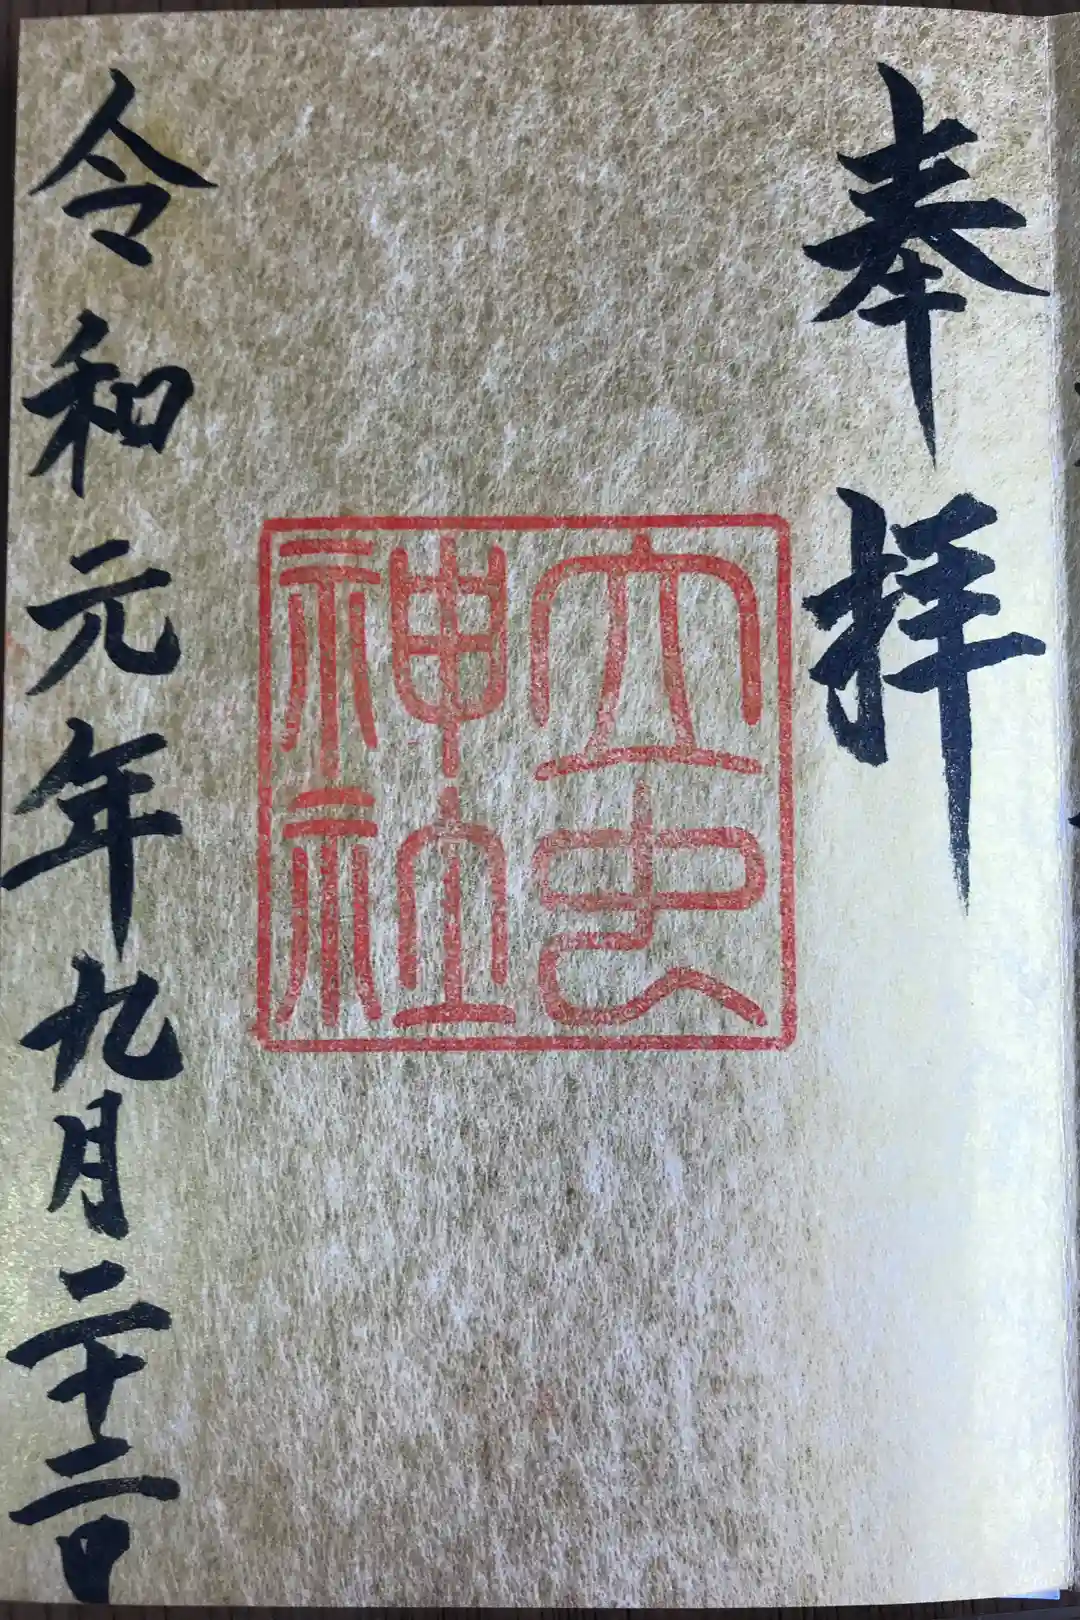 奉拝
立虫
神社
令和元年九月二十二日